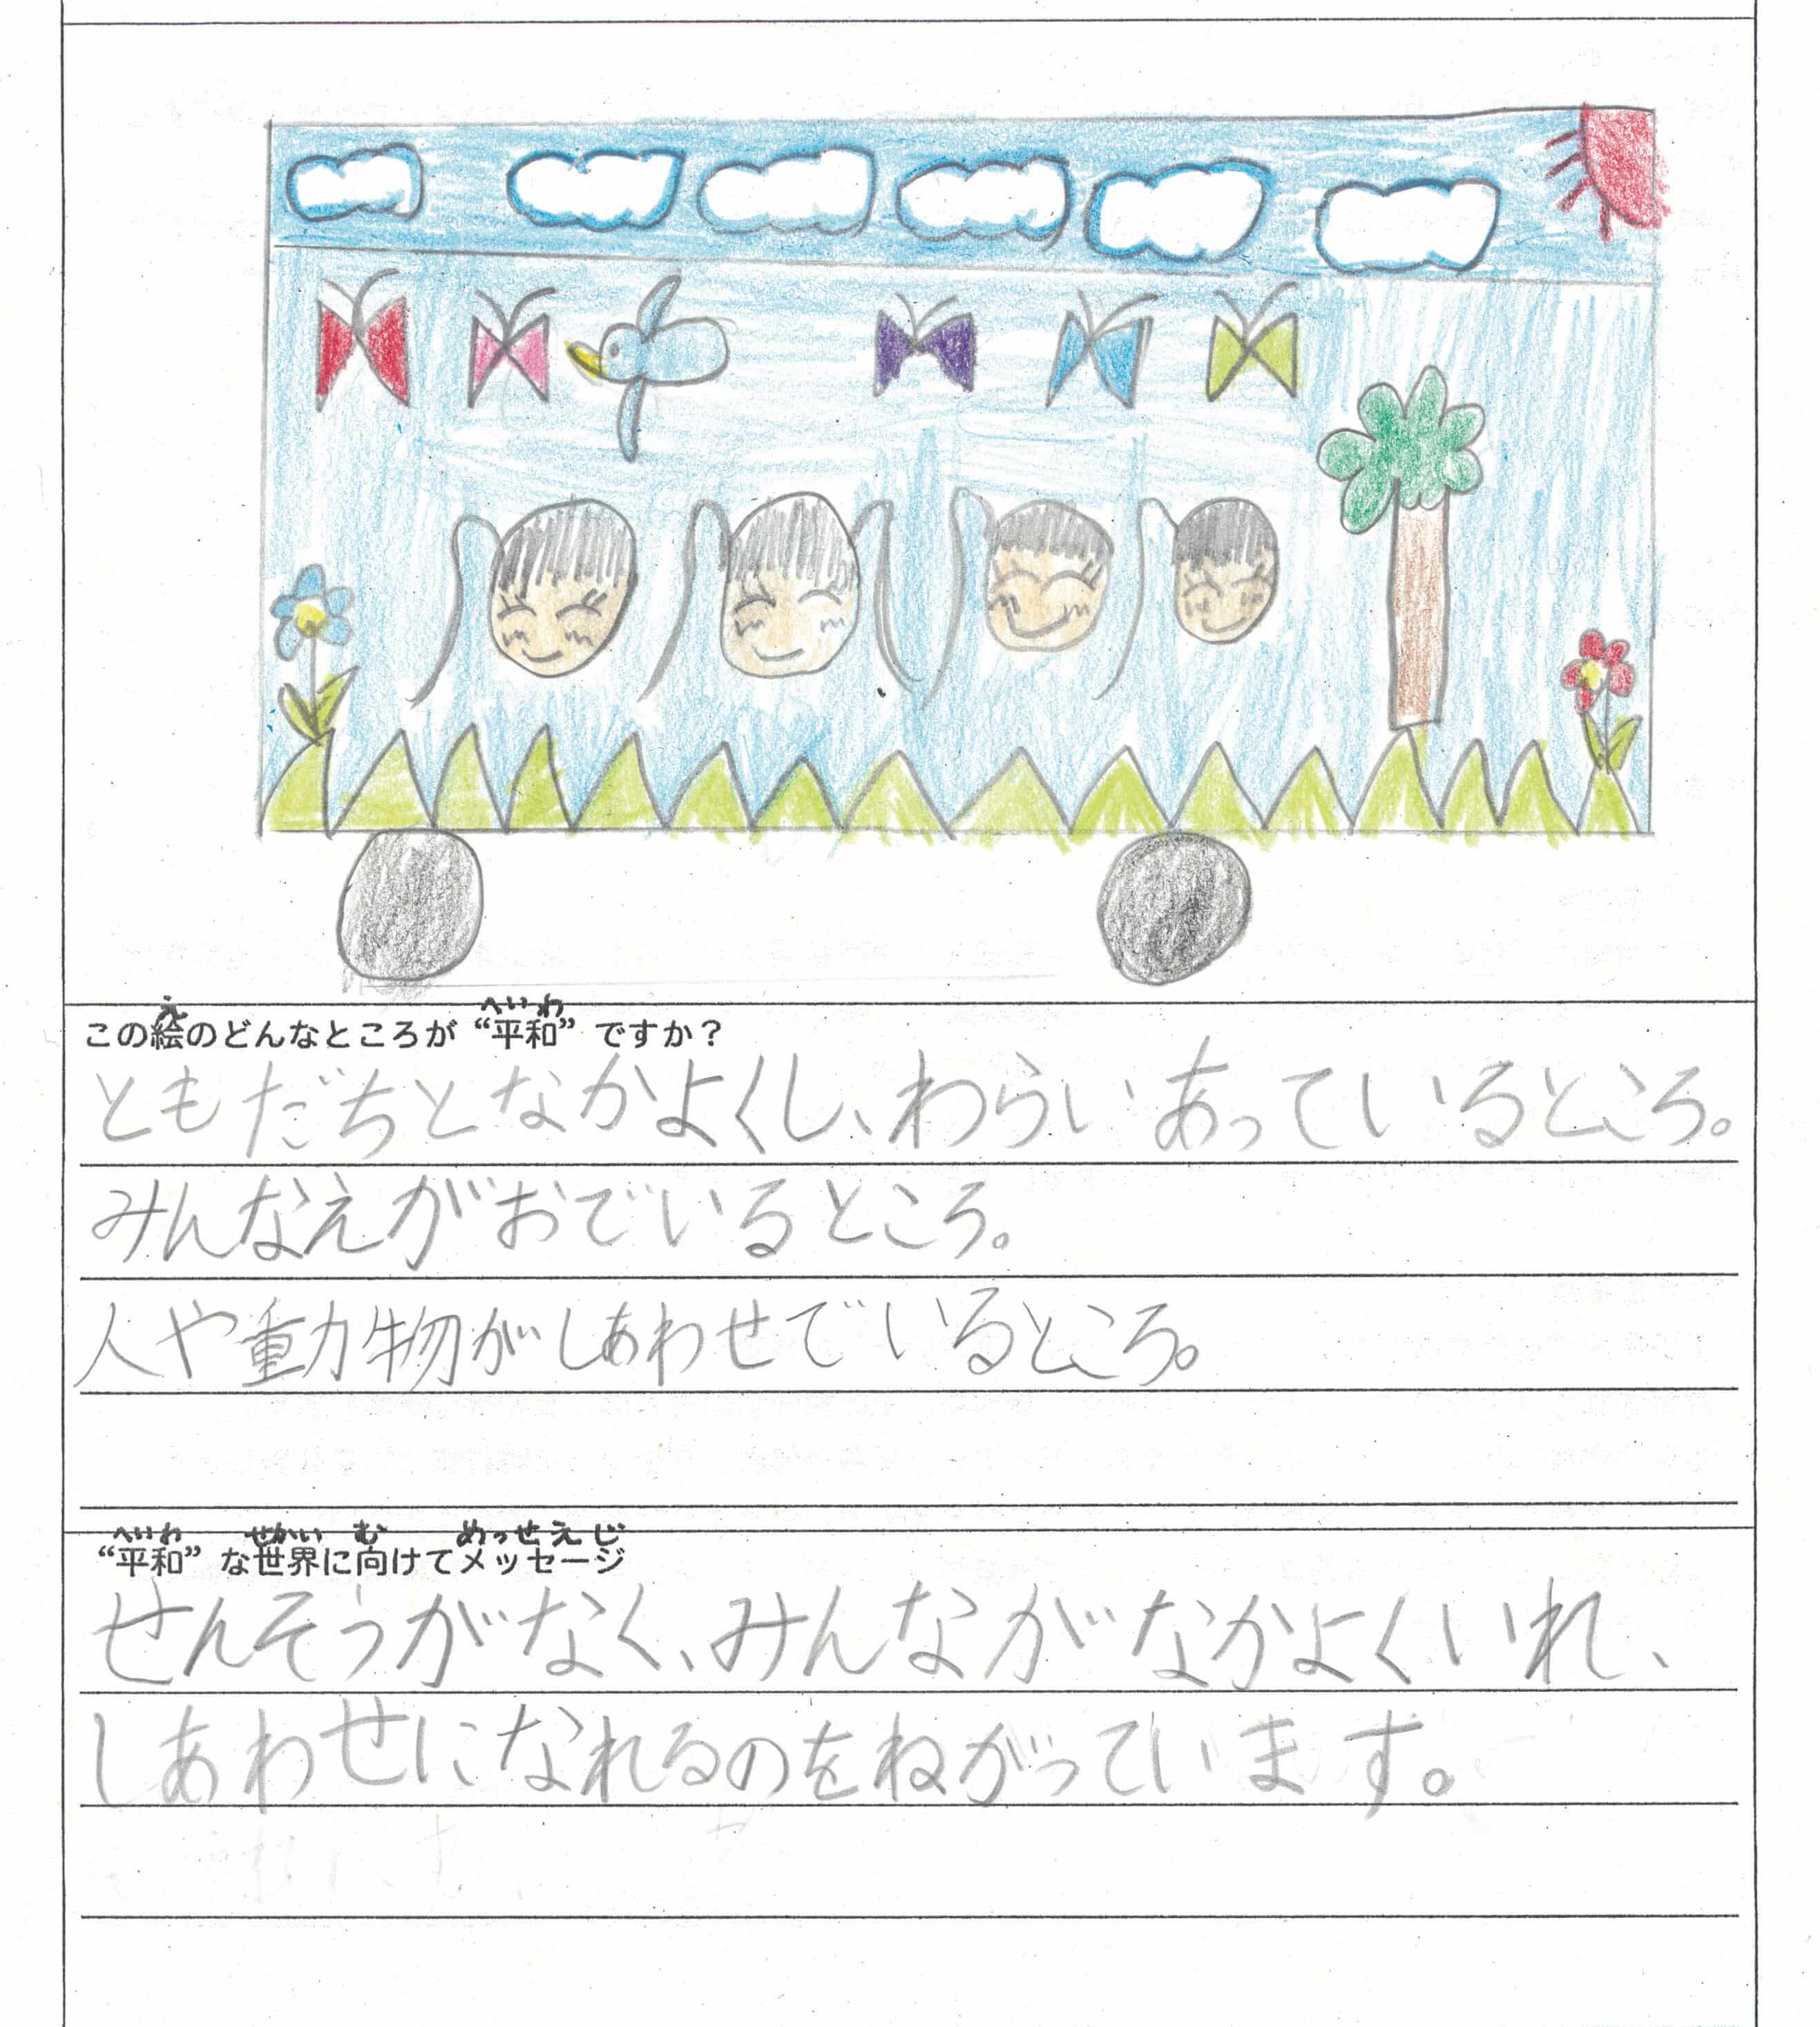 この絵のどんなところが“平和”ですか？
ともだちとなかよくし、わらいあっているところ。
みんなえがおでいるところ。
人や動物がしあわせでいるところ。
“平和”な世界に向けてメッセージ
せんそうがなく、みんながなかよくいれ、
しあわせになれるのをねがっています。